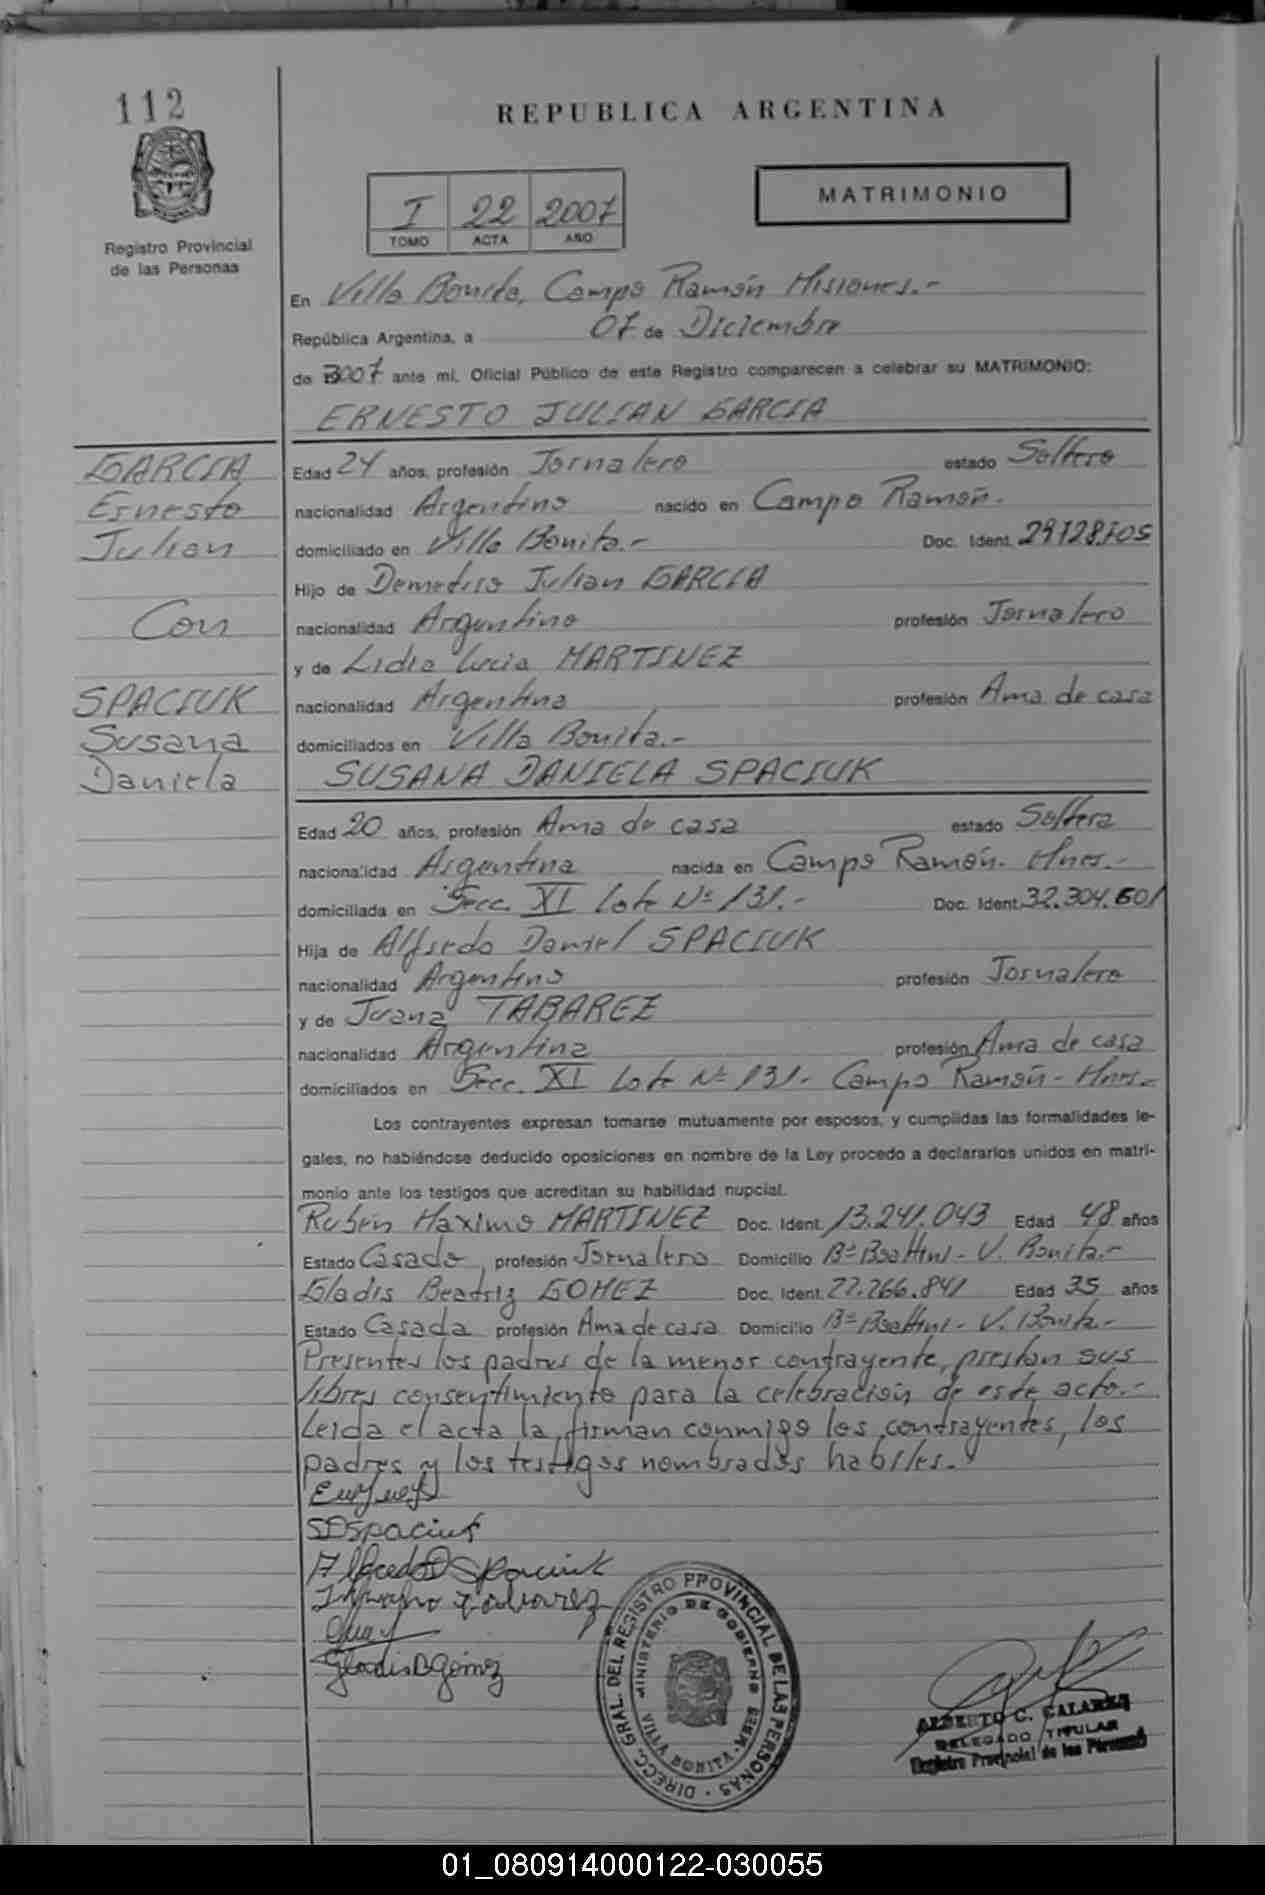 112
REPUBLICA ARGENTINA
Registro Provincial
de las Personas
I 22 2007
TOMO ACTA AÑO
MATRIMONIO
En Villa Bonita, Campo Ramón Misiones.-
República Argentina, a 07 de Diciembre
de 2007 ante mi, Oficial Público de este Registro comparecen a celebrar su MATRIMONIO:
ERNESTO JULIAN GARCIA
GARCIA
Ernesto
Julian
Con
SPACIUK
Susana
Daniela
Edad 24 años, profesión Jornalero estado Soltero
nacionalidad Argentino nacido en Campo Ramón.
domiciliado en Villa Bonita.- Doc. Ident.
Hijo de Demetrio Julian GARCIA
nacionalidad Argentino profesión Jornalero
y de Lidia Lucia MARTINEZ
nacionalidad Argentina profesión Ama de casa
domiciliados en Villa Bonita.-
SUSANA DANIELA SPACIUK
Edad 20 años, profesión Ama de casa estado Soltera
nacionalidad Argentina nacida en Campo Ramón. Mnes.-
domiciliada en Secc. XI Lote Nº 131.- Doc. Ident. 32.304.601
Hija de Alfredo Daniel SPACIUK
nacionalidad Argentino profesión Jornalero
y de Juana TABAREZ
nacionalidad Argentina profesión Ama de casa
domiciliados en Secc. XI Lote Nº 131.- Campo Ramón - Mnes.-
Los contrayentes expresan tomarse mutuamente por esposos, y cumplidas las formalidades le-
gales, no habiéndose deducido oposiciones en nombre de la Ley procedo a declararlos unidos en matri-
monio ante los testigos que acreditan su habilidad nupcial.
Rubén Maximo MARTINEZ Doc. Ident. 13.241.043 Edad 48 años
Estado Casado, profesión Jornalero Domicilio Bº - V. Bonita.-
Gladis Beatriz GOMEZ Doc. Ident. 22.266.841 Edad 35 años
Estado Casada profesión Ama de casa Domicilio Bº - V. Bonita.-
Presentes los padres de la menor contrayente, prestan sus
libres consentimiento para la celebración de este acto.-
Leida el acta la firman conmigo los contrayentes, los
padres y los testigos nombrados habiles.-
SDSpaciuk
Alfredo D Spaciuk
Gladis B Gomez
DIRECC. GRAL. DEL REGISTRO PROVINCIAL DE LAS PERSONAS
MINISTERIO DE GOBIERNO
VILLA BONITA
ALBERTO C.
DELEGADO TITULAR
Registro Provincial de las Personas
01_080914000122-030055